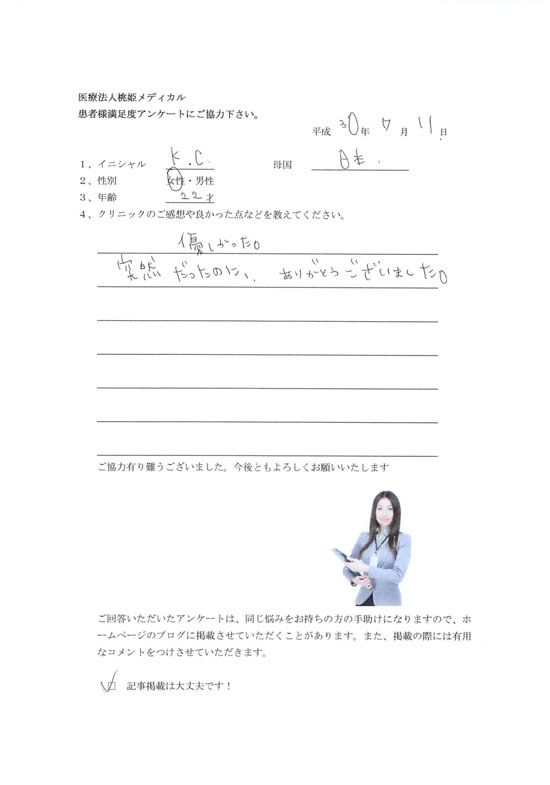 医療法人桃姫メディカル
患者様満足度アンケートにご協力下さい。
平成 30年 7月 11日
1、イニシャル K.C. 母国 日本.
2、性別 女性・男性
3、年齢 22才
4、クリニックのご感想や良かった点などを教えてください。
優しかった。
突然だったのに、ありがとうございました。
ご協力有り難うございました。今後ともよろしくお願いいたします
ご回答いただいたアンケートは、同じ悩みをお持ちの方の手助けになりますので、ホ
ームページのブログに掲載させていただくことがあります。また、掲載の際には有用
なコメントをつけさせていただきます。
☑ 記事掲載は大丈夫です！